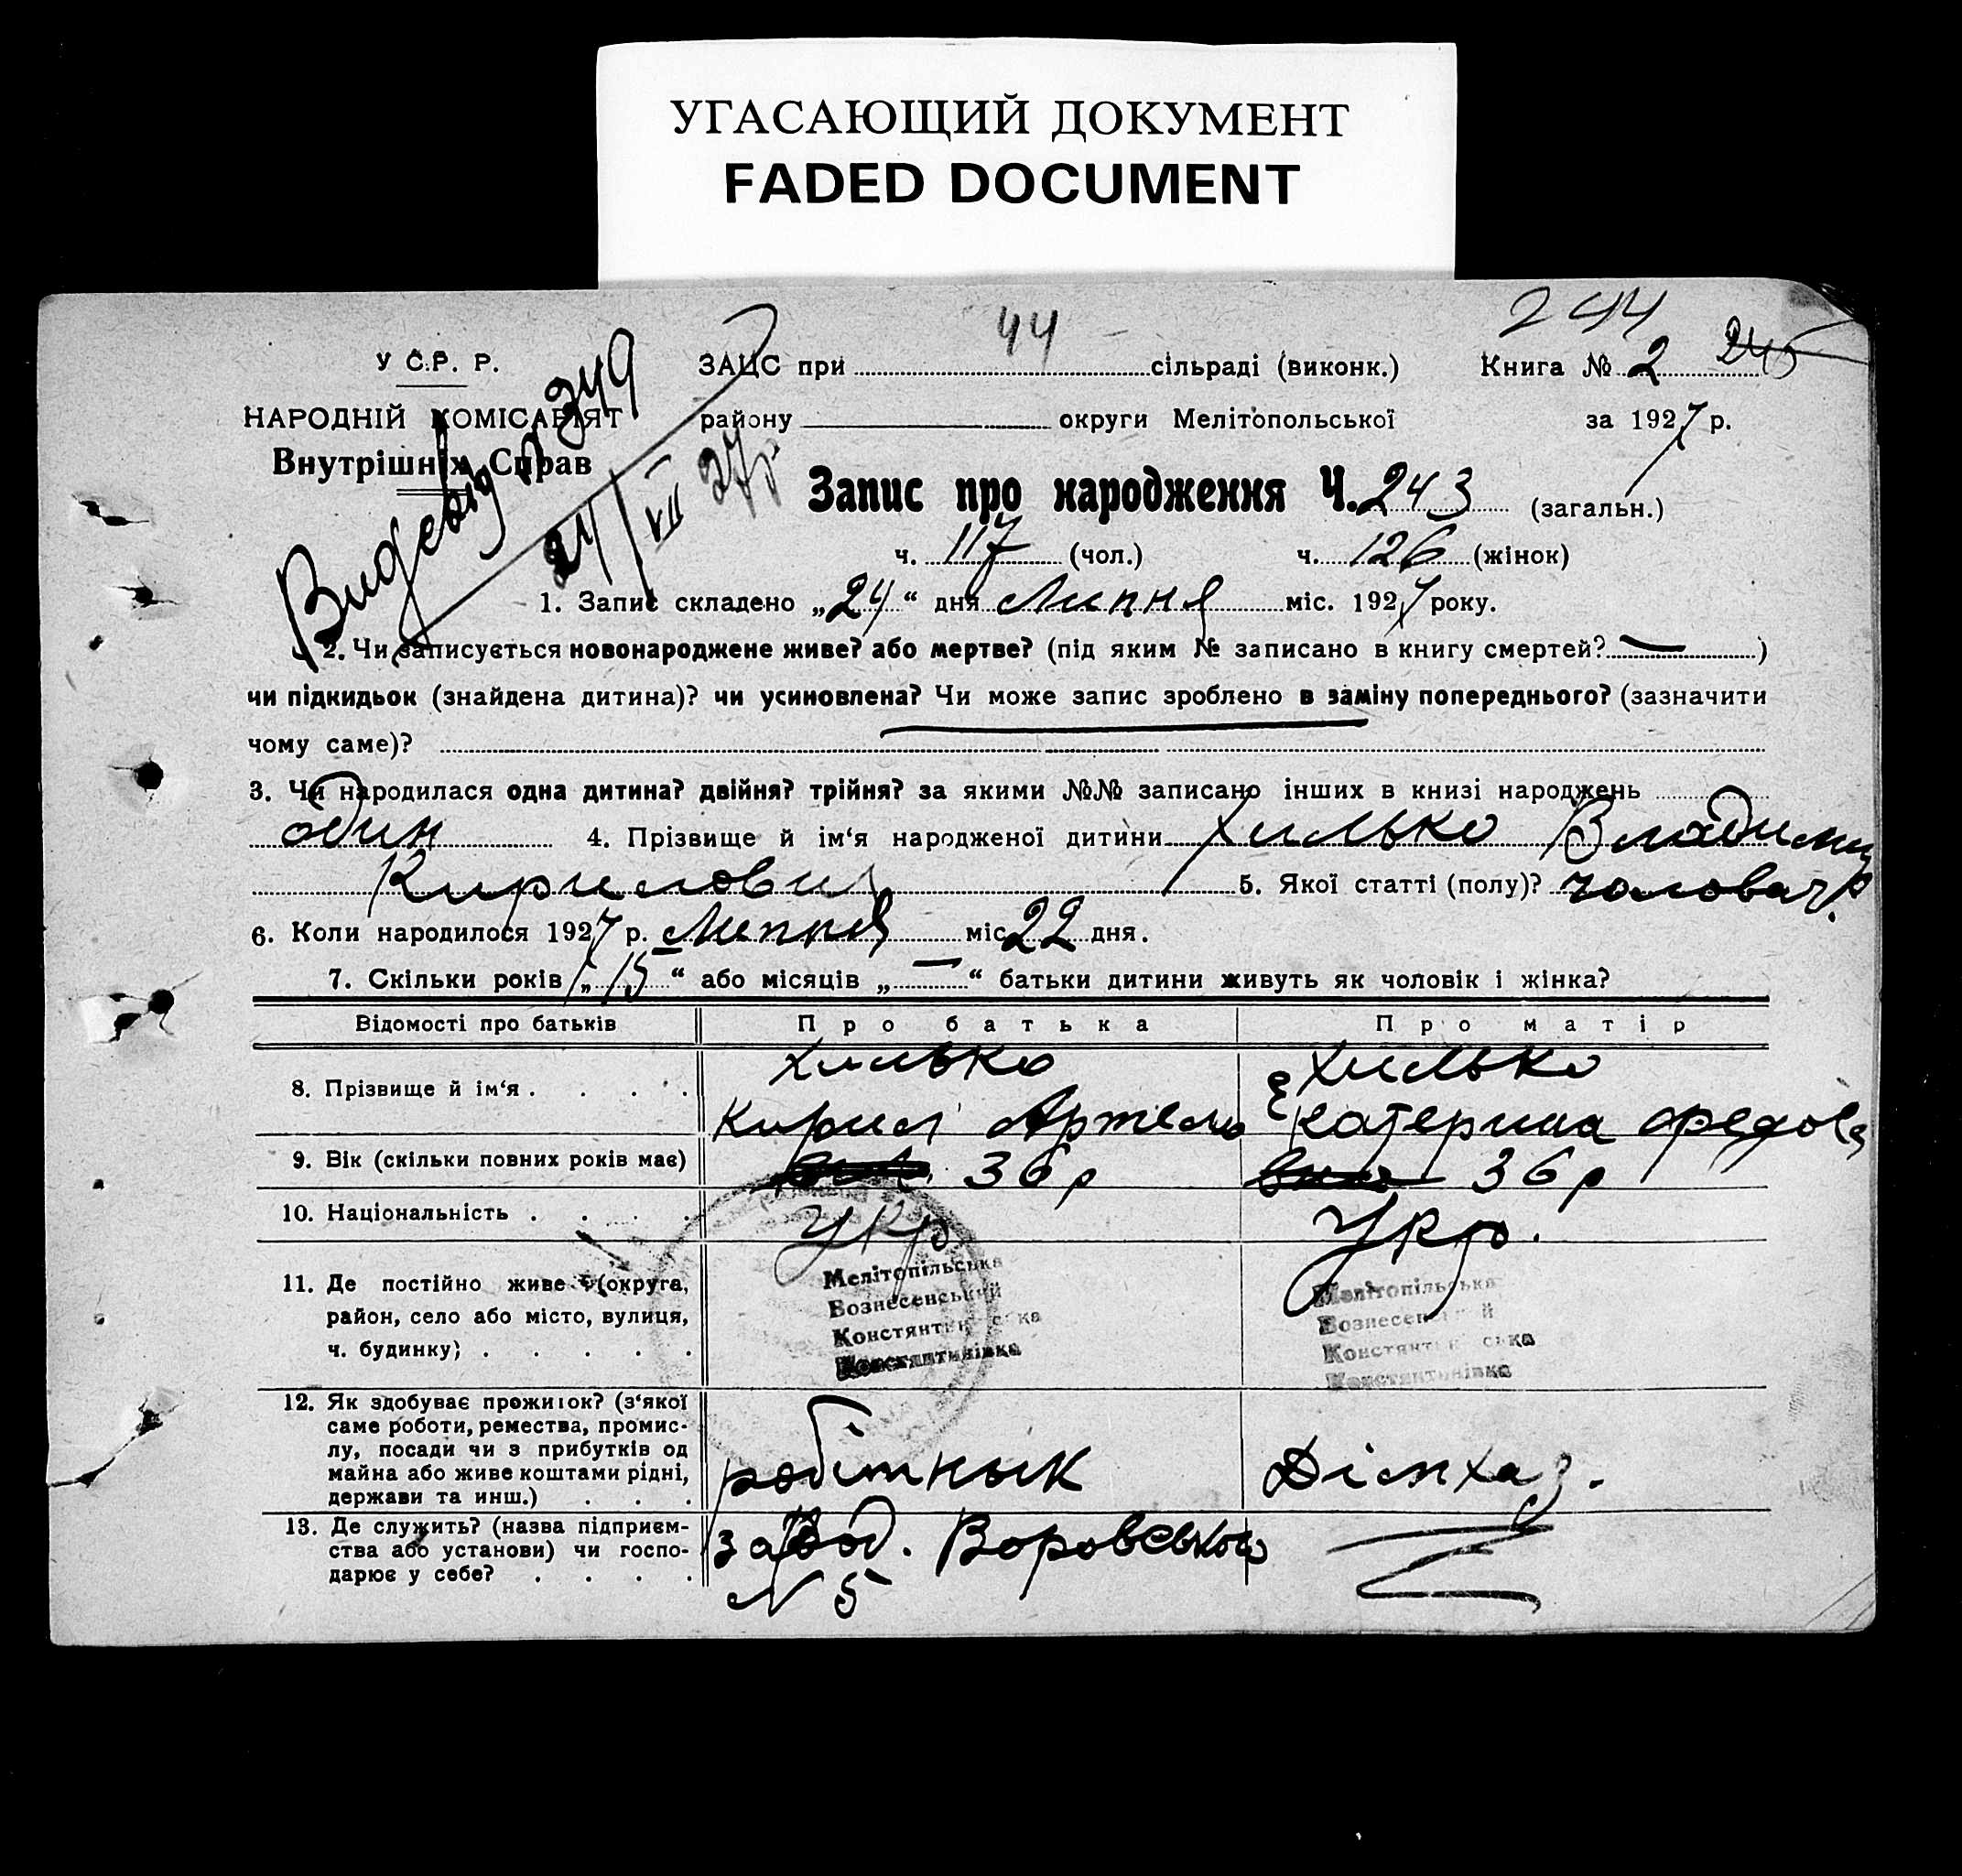 УГАСАЮЩИЙ ДОКУМЕНТ
FADED DOCUMENT
44
244
У С.Р. Р.
ЗАЦС при сільраді (виконк.)
Книга № 2 245
НАРОДНІЙ КОМІСАРІЯТ
району округи Мелітопольської
за 1927 р.
Внутрішніх Справ
№ 349
24/VII 27р.
Запис про народження Ч. 243 (загальн.)
ч. 117 (чол.) ч. 126 (жінок)
1. Запис складено „24“ дня Липня міс. 1927 року.
2. Чи записується новонароджене живе? або мертве? (під яким № записано в книгу смертей? — )
чи підкидьок (знайдена дитина)? чи усиновлена? Чи може запис зроблено в заміну попереднього? (зазначити
чому саме)?
3. Чи народилася одна дитина? двійня? трійня? за якими №№ записано інших в книзі народжень
один 4. Прізвище й ім‘я народженої дитини Хилько Владимир
Кирилович 5. Якої статті (полу)? чоловач.
6. Коли народилося 1927 р. Липня міс 22 дня.
7. Скільки років „15“ або місяців „—“ батьки дитини живуть як чоловік і жінка?
Відомості про батьків Про батька Про матір
8. Прізвище й ім‘я . . . . Хилько Хилько
Кирил Артем Екатерина Федов
9. Вік (скільки повних років має) 36 р 36 р
10. Національність . . . . Укр Укр.
11. Де постійно живе (округа,
район, село або місто, вулиця,
ч. будинку) . . . . .
Мелітопільська
Вознесенський
Константинівська
Константинівка
Мелітопільська
Вознесенський
Константинівська
Константинівка
12. Як здобуває прожиток? (з‘якої
саме роботи, ремества, промис-
лу, посади чи з прибутків од
майна або живе коштами рідні,
держави та инш.) . . .
робітнык Дімхаз.
13. Де служить? (назва підприєм-
ства або установи) чи госпо-
дарює у себе? . . . .
завод. Воровського
N 5